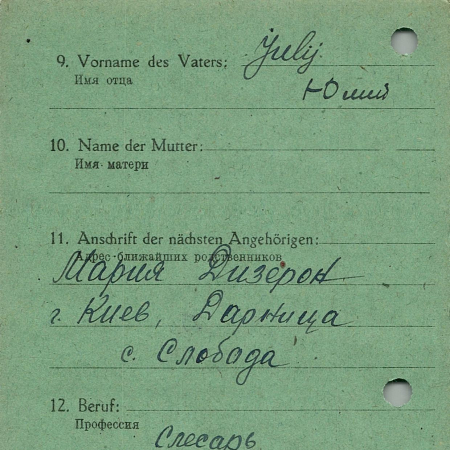 9. Vorname des Vaters: Julij
Имя отца
Юлий
10. Name der Mutter:
Имя матери
11. Anschrift der nächsten Angehörigen:
Адрес ближайших родственников
Мария Дизерон
г. Киев, Дарница
с. Слобода
12. Beruf:
Профессия
Слесарь